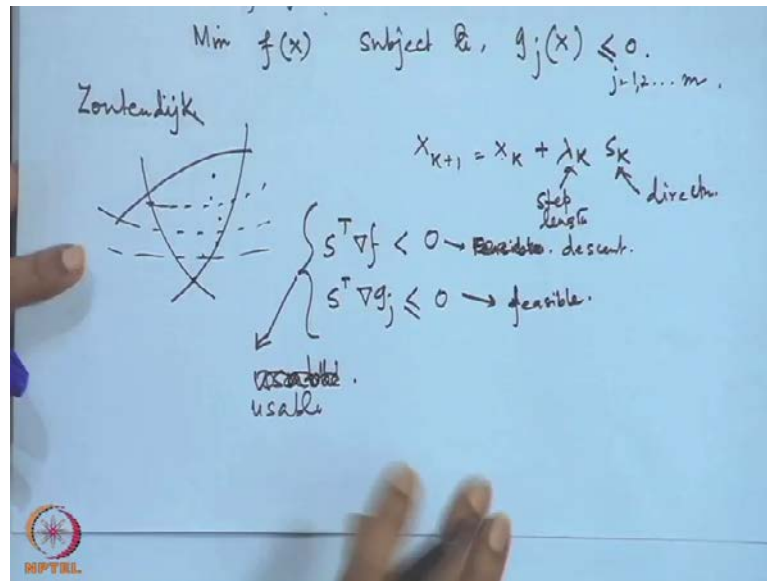 Min f(x) Subject to, gj(x) ≤ 0.
j=1,2... m.
Zoutendijk
X_{K+1} = X_K + λ_K S_K
step length
directn.
S^T ∇f < 0 → descent.
S^T ∇gj ≤ 0 → feasible.
usable
NPTEL